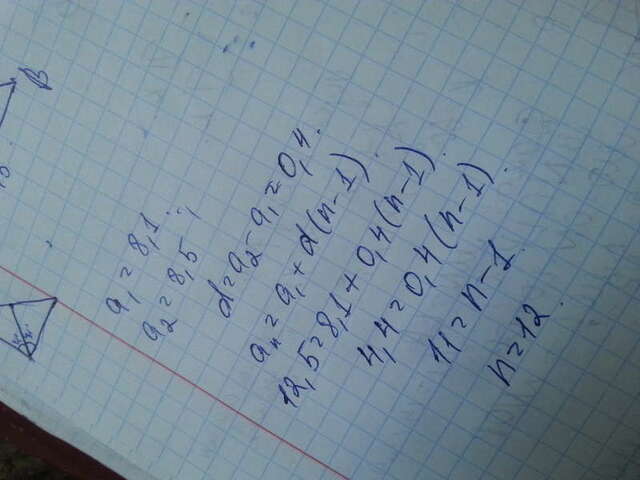 a₁ = 8,1.
a₂ = 8,5;
d = a₂ - a₁ = 0,4.
aₙ = a₁ + d(n-1).
12,5 = 8,1 + 0,4(n-1).
4,4 = 0,4(n-1).
11 = n-1.
n = 12.
B